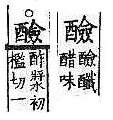 醶醶䤘醋味
○醶酢漿初檻切一